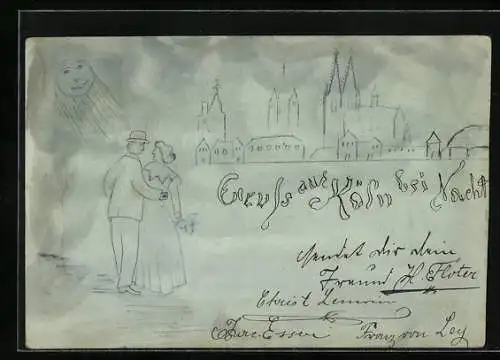 Gruss aus Köln bei Nacht
sendet dir dein
Freund H. Floter
Christ
Jac. Esser Franz von Ley